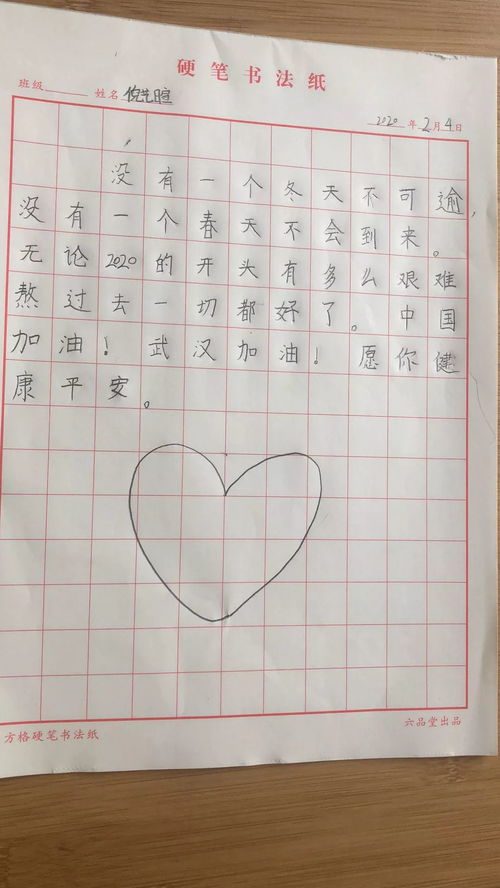 硬笔书法纸
班级 姓名 倪艺暄
2020年2月4日
没有一个冬天不可逾,
没有一个春天不会到来。
无论2020的开头有多么艰难
熬过去一切都好了。中国
加油!武汉加油!愿你健
康平安。
方格硬笔书法纸 六品堂出品